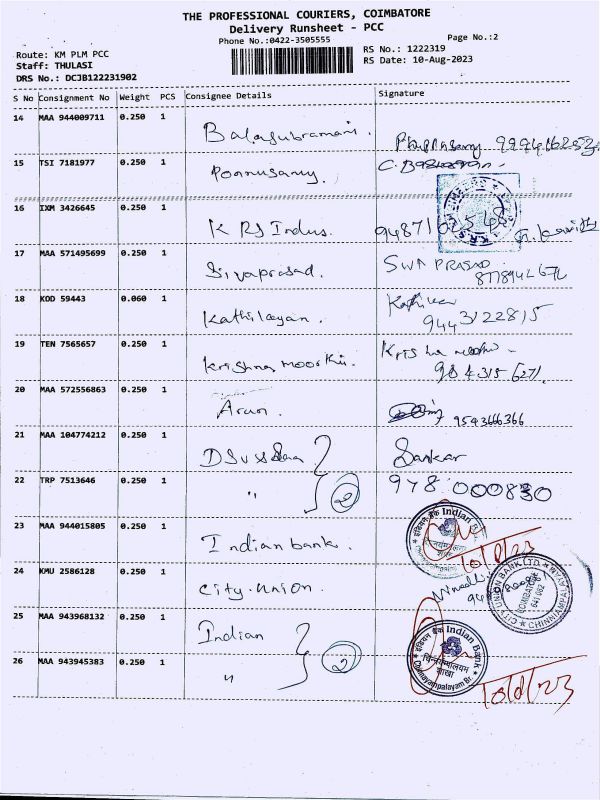 THE PROFESSIONAL COURIERS, COIMBATORE
Delivery Runsheet - PCC
Phone No.:0422-3505555
Page No.:2
Route: KM PLM PCC
Staff: THULASI
DRS No.: DCJB122231902
RS No.: 1222319
RS Date: 10-Aug-2023
S No Consignment No Weight PCS Consignee Details Signature
14 MAA 944009711 0.250 1 Balasubramani.
15 TSI 7181977 0.250 1 Ponnusamy.
16 IXM 3426645 0.250 1 K RS Indus.
17 MAA 571495699 0.250 1 Sivaprasad.
SIVA PRASAD
18 KOD 59443 0.060 1 Kathilayan.
9443122815
19 TEN 7565657 0.250 1 Krishna moorthi.
20 MAA 572556863 0.250 1 Arun.
9543666366
21 MAA 104774212 0.250 1 Sankar
22 TRP 7513646 0.250 1 " 2 978 000830
23 MAA 944015805 0.250 1 Indian bank.
10/8/23
24 KMU 2586128 0.250 1 City. union.
CITY UNION BANK LTD.
COIMBATORE
641 062
25 MAA 943968132 0.250 1 Indian
इंडियन बैंक Indian Bank
शाखा
Chinniyampalayam Br.
26 MAA 943945383 0.250 1 " 2
10/8/23